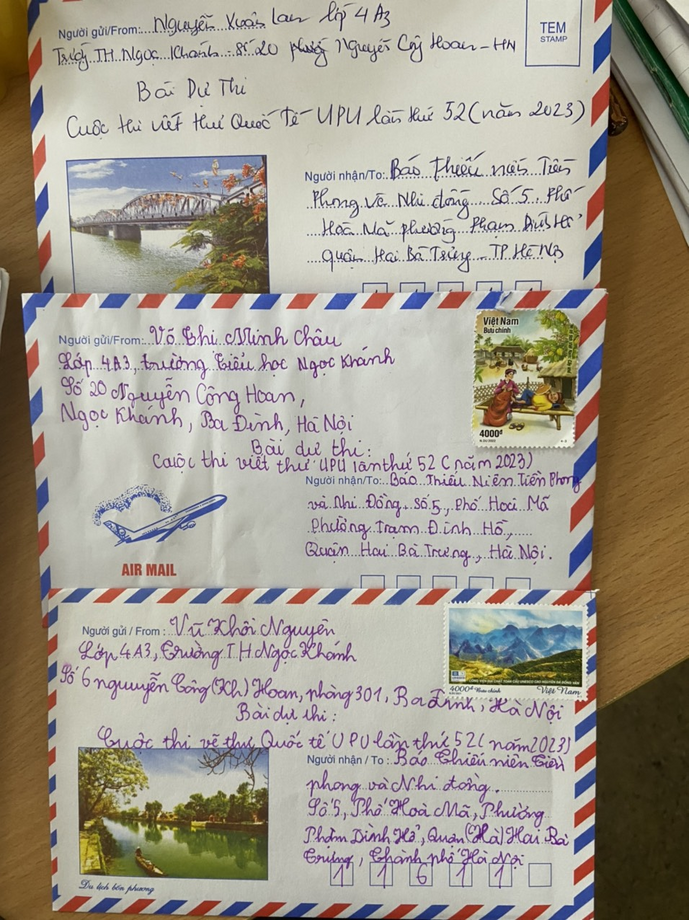 Người gửi/From: Nguyễn Xuân Lan lớp 4A3
Trường TH Ngọc Khánh số 20 phường Nguyễn Công Hoan - HN
TEM
STAMP
Bài Dự Thi
Cuộc thi viết thư Quốc Tế UPU lần thứ 52 (năm 2023)
Người nhận/To: Báo Thiếu niên Tiền
Phong và Nhi đồng Số 5 Phố
Hoà Mã phường Phạm Đình Hổ
quận Hai Bà Trưng TP Hà Nội
Người gửi/From: Võ Thi Minh Châu
Lớp 4A3, trường Tiểu học Ngọc Khánh
Số 20 Nguyễn Công Hoan,
Ngọc Khánh, Ba Đình, Hà Nội
Việt Nam
Bưu chính
4000đ
Bài dự thi:
Cuộc thi viết thư UPU lần thứ 52 (năm 2023)
Người nhận/To: Báo Thiếu Niên Tiền Phong
và Nhi Đồng Số 5, Phố Hoà Mã
Phường Trạm Đình Hổ,
Quận Hai Bà Trưng, Hà Nội.
AIR MAIL
Người gửi / From: Vũ Khôi Nguyên
Lớp 4A3, Trường TH Ngọc Khánh
Số 6 nguyễn Công (Kh) Hoan, phòng 301, Ba Đình, Hà Nội
4000đ Bưu chính Việt Nam
Bài dự thi:
Cuộc thi vẽ thư Quốc tế UPU lần thứ 52 (năm 2023)
Người nhận / To: Báo Thiếu niên Tiền
phong và Nhi đồng.
Số 5, Phố Hoà Mã, Phường
Phạm Đình Hổ, Quận (Hà) Hai Bà
Trưng, Thành phố Hà Nội
1 1 6 1 1
Du lịch bốn phương